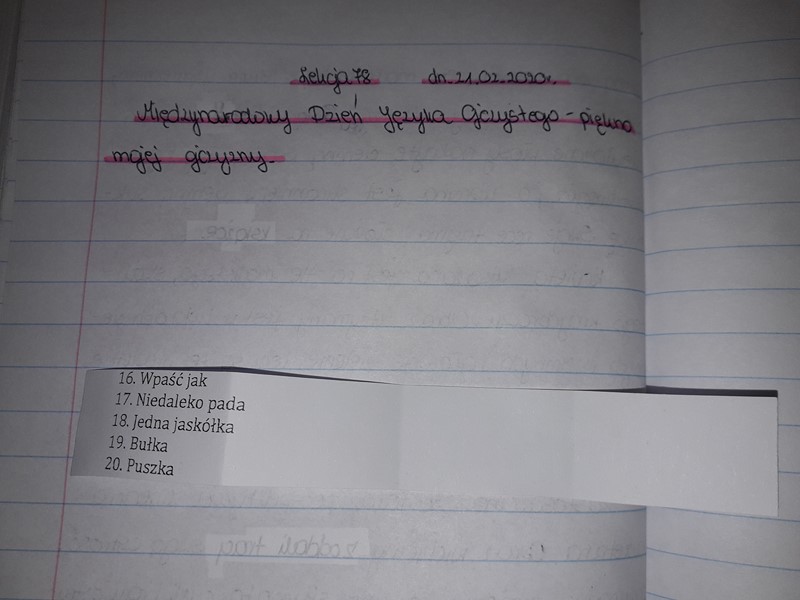 Lekcja 78 dn. 21.02.2020r.
Międzynarodowy Dzień Języka Ojczystego - piękno
mojej ojczyzny.
16. Wpaść jak
17. Niedaleko pada
18. Jedna jaskółka
19. Bułka
20. Puszka